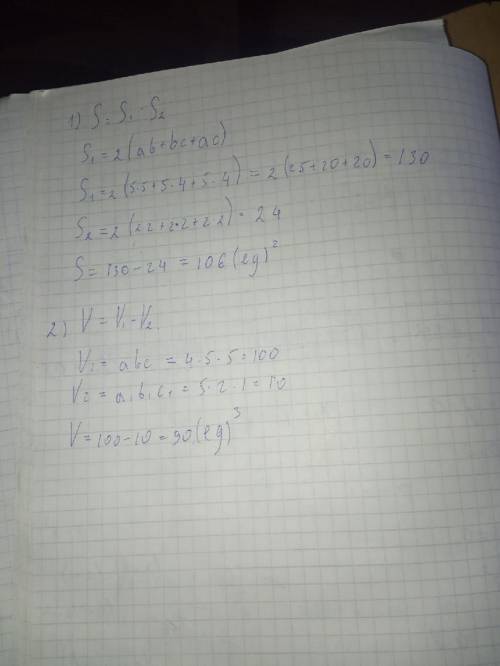 1) S = S₁ - S₂
S₁ = 2(ab+bc+ac)
S₁ = 2(5·5+5·4+5·4) = 2(25+20+20) = 130
S₂ = 2(2·2+2·2+2·2) = 24
S = 130-24 = 106 (eg)²
2) V = V₁-V₂
V₁ = abc = 4·5·5 = 100
V₂ = a₁b₁c₁ = 5·2·1 = 10
V = 100-10 = 90 (eg)³